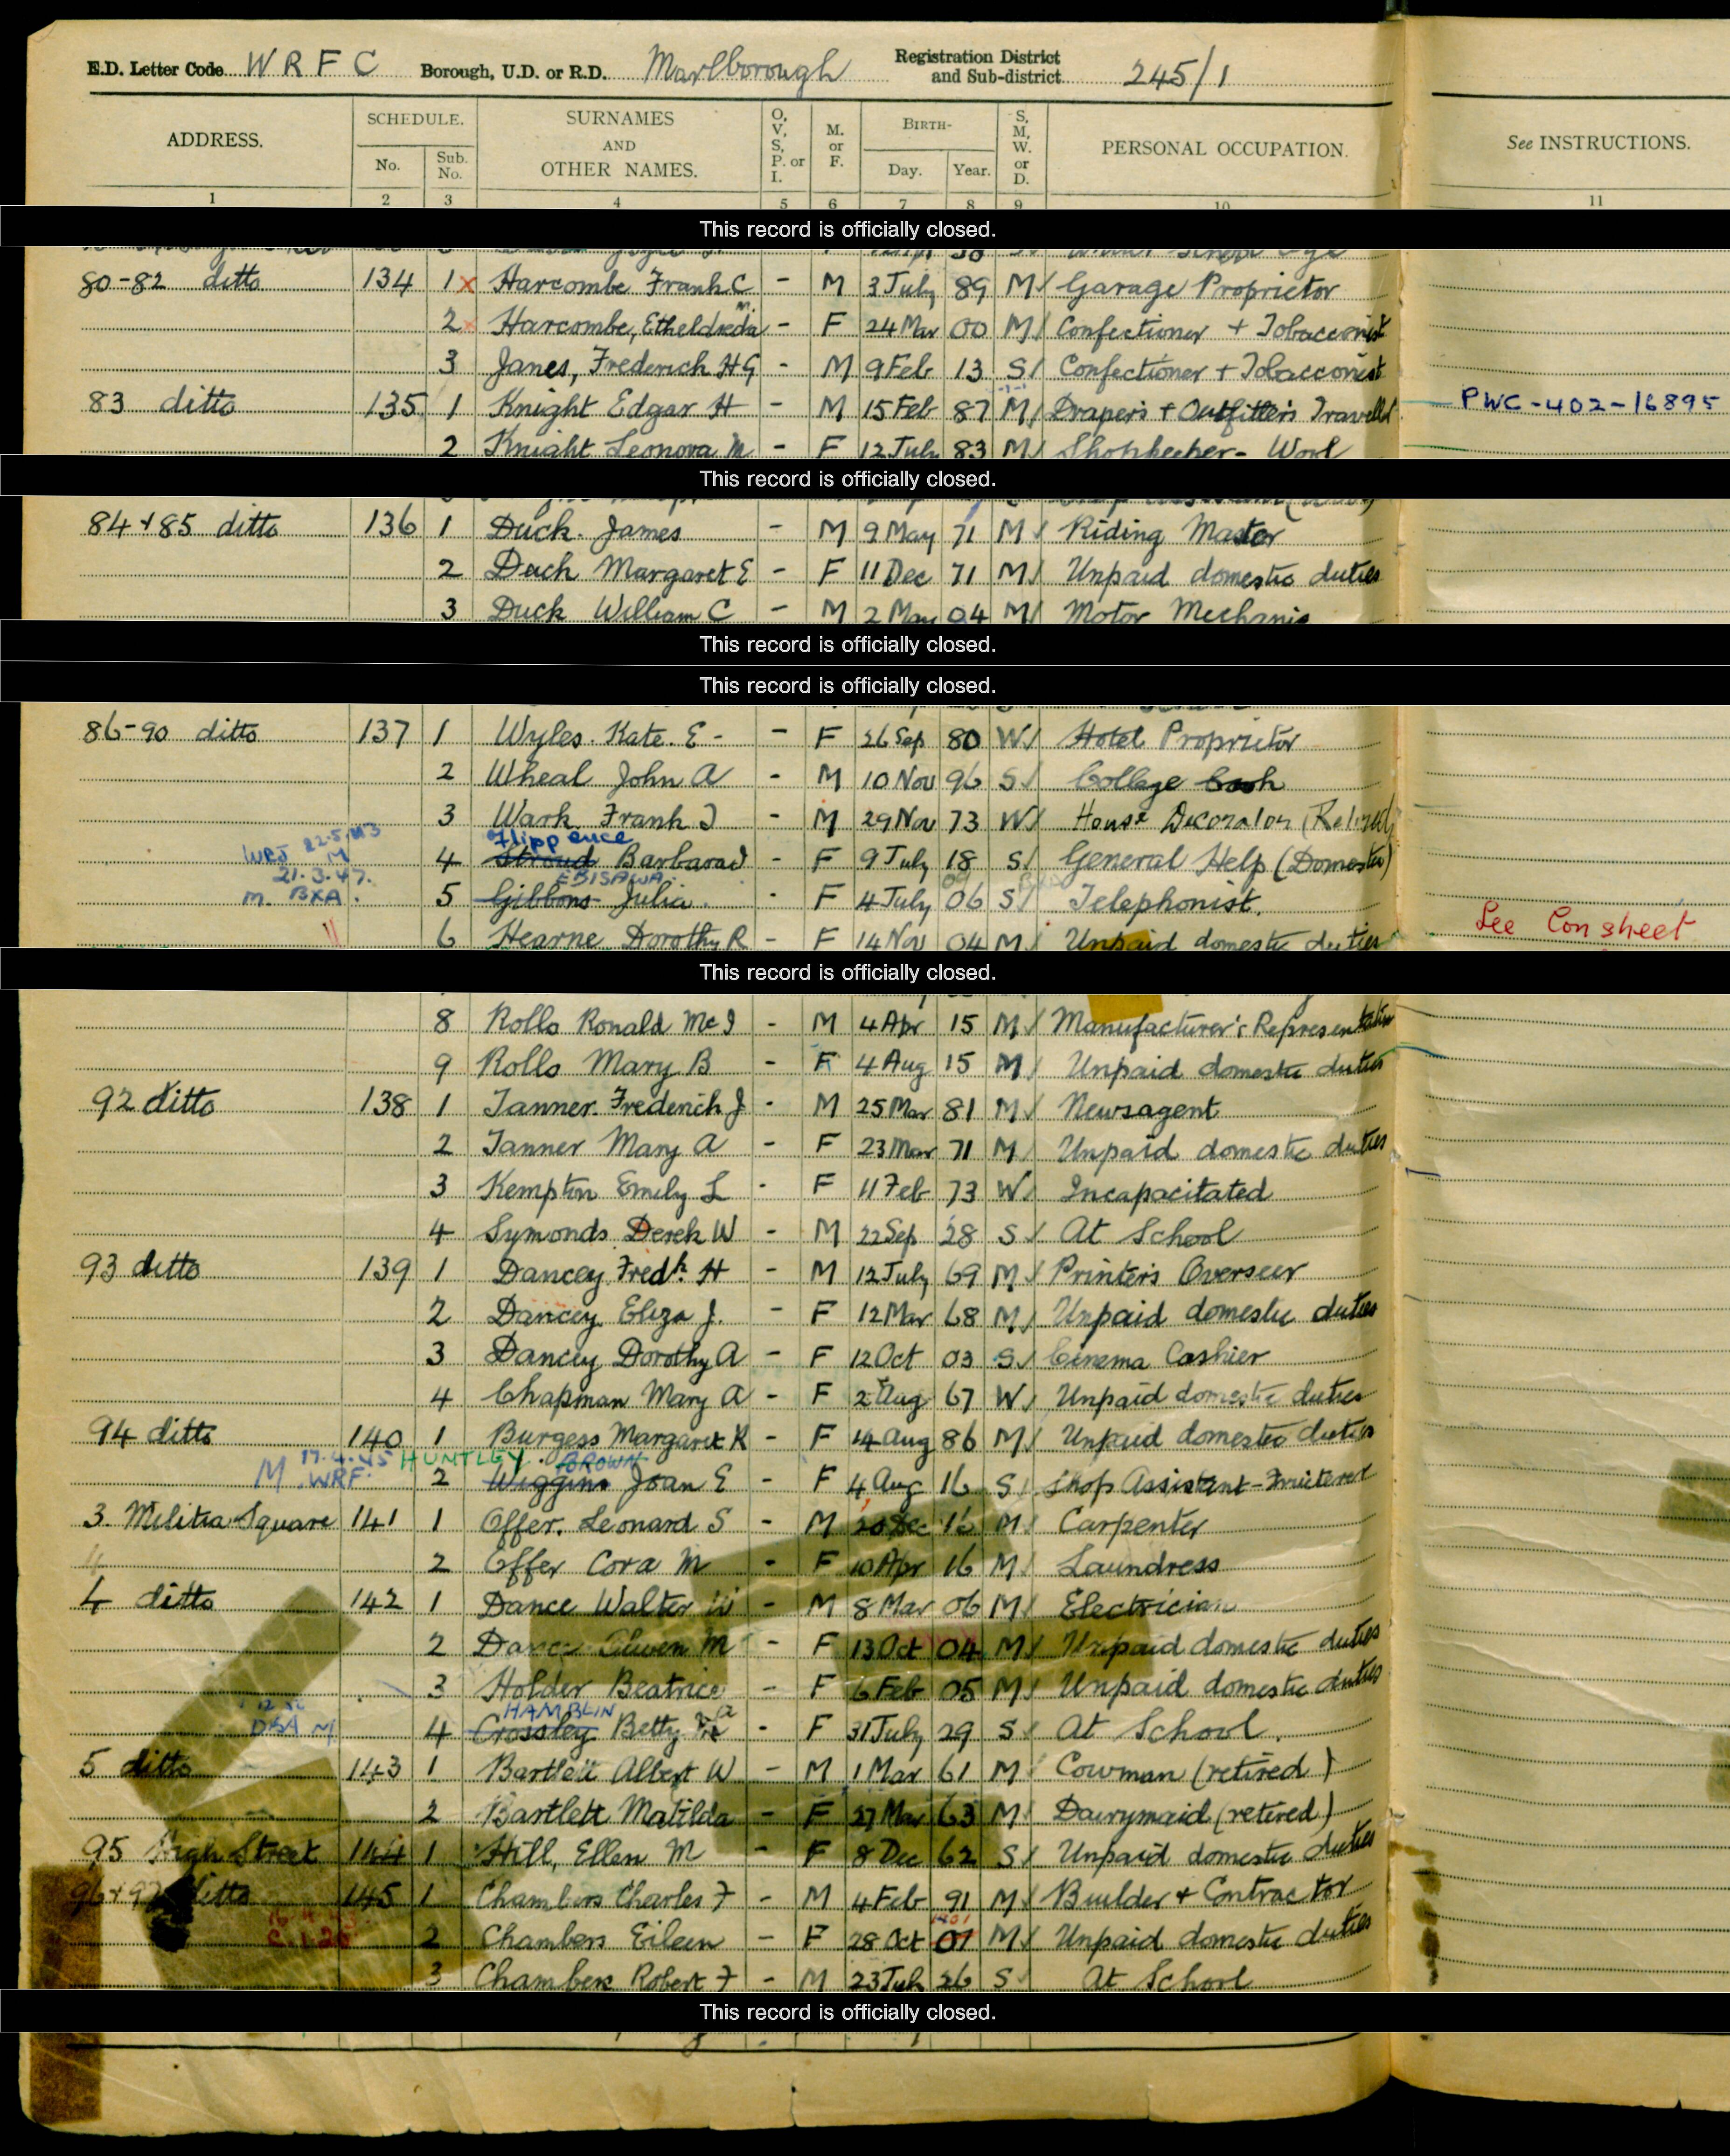 E.D. Letter Code W R F C Borough, U.D. or R.D. Marlborough Registration District and Sub-district 245/1
ADDRESS. SCHEDULE. No. Sub. No. SURNAMES AND OTHER NAMES. O, V, S, P. or I. M. or F. BIRTH- Day. Year. S, M, W. or D. PERSONAL OCCUPATION. See INSTRUCTIONS.
1 2 3 4 5 6 7 8 9 10 11
This record is officially closed.
80-82 ditto 134 1 x Harcombe Frank C - M 3 July 89 M Garage Proprietor
2 x Harcombe, Etheldreda M - F 24 Mar 00 M Confectioner + Tobacconist
3 Janes, Frederick H G - M 9 Feb 13 S Confectioner + Tobacconist
83 ditto 135 1 Knight Edgar H - M 15 Feb 87 M Draper's + Outfitter's Traveller PWC-402-16895
2 Knight Leonora M - F 12 July 83 M Shopkeeper - Wool
This record is officially closed.
84+85 ditto 136 1 Duck James - M 9 May 71 M Riding Master
2 Duck Margaret E - F 11 Dec 71 M Unpaid domestic duties
3 Duck William C - M 2 May 04 M Motor Mechanic
This record is officially closed.
This record is officially closed.
86-90 ditto 137 1 Wyles Kate E - - F 26 Sep 80 W Hotel Proprietor
2 Wheal John A - M 10 Nov 96 S College Cook
3 Wark Frank J - M 29 Nov 73 W House Decorator (Retired)
WRJ 22.5.43 M Flippence
4 Stroud Barbara J - F 9 July 18 S General Help (Domestic)
21.3.47. EBISAWA 09
m. BXA. 5 Gibbons Julia - F 4 July 06 S Telephonist.
6 Hearne Dorothy R - F 14 Nov 04 M Unpaid domestic duties See Con sheet
This record is officially closed.
8 Rollo Ronald McI - M 4 Apr 15 M Manufacturer's Representative
9 Rollo Mary B - F 4 Aug 15 M Unpaid domestic duties
92 ditto 138 1 Tanner Frederick J - M 25 Mar 81 M Newsagent
2 Tanner Mary A - F 23 Mar 71 M Unpaid domestic duties
3 Kempton Emily L - F 11 Feb 73 W Incapacitated
4 Symonds Derek W - M 22 Sep 28 S At School
93 ditto 139 1 Dancey Fredk. H - M 12 July 69 M Printer's Overseer
2 Dancey Eliza J. - F 12 Mar 68 M Unpaid domestic duties
3 Dancey Dorothy A - F 12 Oct 03 S Cinema Cashier
4 Chapman Mary A - F 2 Aug 67 W Unpaid domestic duties
94 ditto 140 1 Burgess Margaret K - F 14 Aug 86 M Unpaid domestic duties
17.4.45 HUNTLEY BROWN
M WRF. 2 Wiggins Joan E - F 4 Aug 16 S Shop Assistant - Fruiterer
3 Militia Square 141 1 Offer, Leonard S - M 20 Dec 16 M Carpenter
2 Offer Cora M - F 10 Apr 16 M Laundress
4 ditto 142 1 Dance Walter W - M 8 Mar 06 M Electrician
2 Dance M - F 13 Oct 04 M Unpaid domestic duties
3 Holder Beatrice - F 6 Feb 05 M Unpaid domestic duties
HAMBLIN
4 Crossley Betty - F 31 July 29 S At School.
5 ditto 143 1 Bartlett Albert W - M 1 Mar 61 M Cowman (retired)
2 Bartlett Matilda - F 27 Mar 63 M Dairymaid (retired)
95 High Street 144 1 Hill, Ellen M - F 8 Dec 62 S Unpaid domestic duties
96+97 ditto 145 1 Chambers Charles F - M 4 Feb 91 M Builder + Contractor
2 Chambers Eileen - F 28 Oct 01 M Unpaid domestic duties
3 Chambers Robert F - M 23 July 26 S At School
This record is officially closed.